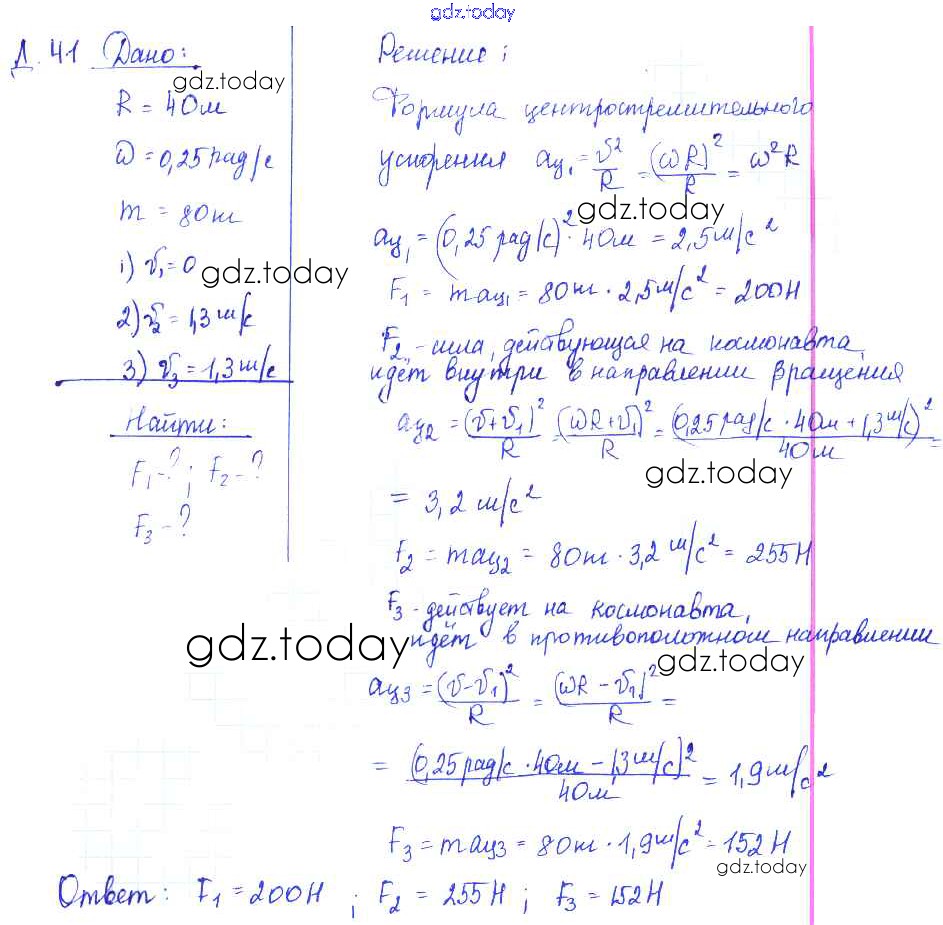 gdz.today
Д. 41 Дано:
gdz.today
R = 40м
ω = 0,25 рад/с
m = 80кг
1) v₁ = 0
gdz.today
2) v₂ = 1,3 м/с
3) v₃ = 1,3 м/с
Найти:
F₁ - ? ; F₂ - ?
F₃ - ?
Решение:
Формула центростремительного
ускорения aц₁ = v²/R = (ωR)²/R = ω²R
gdz.today
aц₁ = (0,25 рад/с)² · 40м = 2,5 м/с²
F₁ = maц₁ = 80кг · 2,5 м/с² = 200Н
F₂ - сила, действующая на космонавта,
идет внутри в направлении вращения
aц₂ = (v+v₁)²/R = (ωR+v₁)²/R = (0,25 рад/с · 40м + 1,3 м/с)²/40м =
gdz.today
= 3,2 м/с²
F₂ = maц₂ = 80кг · 3,2 м/с² = 255Н
F₃ - действует на космонавта,
идёт в противоположном направлении
gdz.today
gdz.today
aц₃ = (v-v₁)²/R = (ωR - v₁)²/R =
= (0,25 рад/с · 40м - 1,3 м/с)²/40м = 1,9 м/с²
F₃ = maц₃ = 80кг · 1,9 м/с² = 152Н
gdz.today
Ответ: F₁ = 200Н ; F₂ = 255Н ; F₃ = 152Н